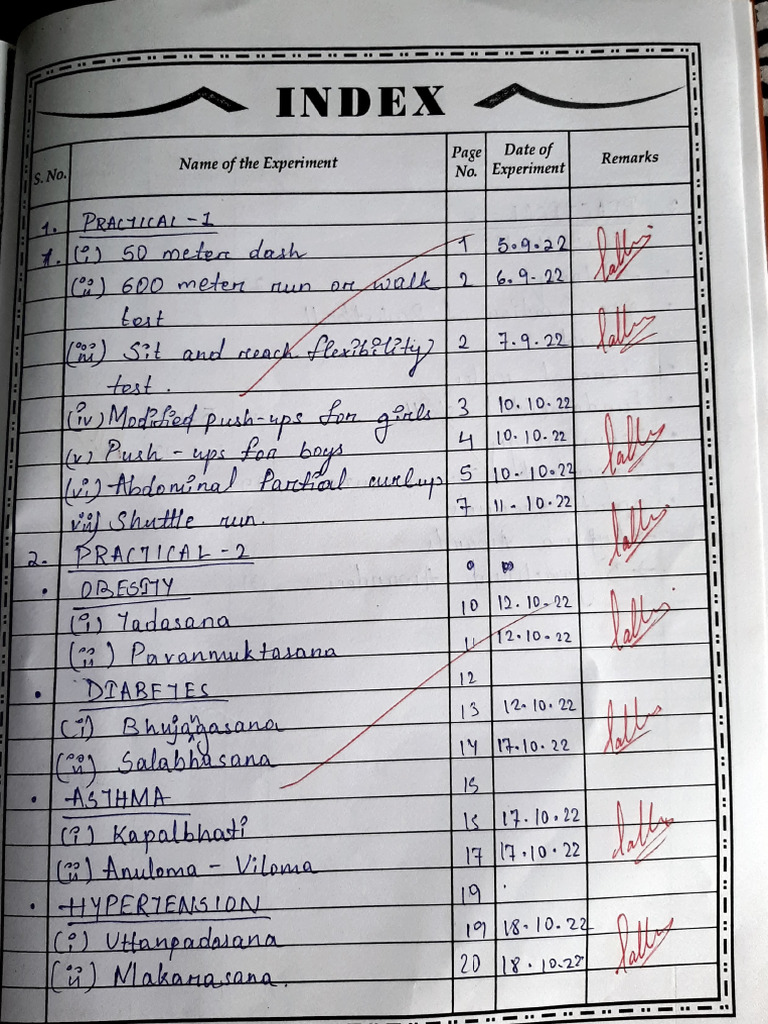 INDEX
S. No. Name of the Experiment Page No. Date of Experiment Remarks
1. PRACTICAL - 1
1. (i) 50 meter dash 1 5.9.22
(ii) 600 meter run or walk 2 6.9.22
test
(iii) Sit and reach flexibility 2 7.9.22
test.
(iv) Modified push-ups for girls 3 10.10.22
(v) Push - ups for boys 4 10.10.22
(vi) Abdominal Partial curlup 5 10.10.22
vii) Shuttle run. 7 11.10.22
2. PRACTICAL - 2
• OBESITY
(i) Tadasana 10 12.10.22
(ii) Pavanmuktasana 11 12.10.22
• DIABETES 12
(i) Bhujangasana 13 12.10.22
(ii) Salabhasana 14 17.10.22
• ASTHMA 15
(i) Kapalbhati 15 17.10.22
(ii) Anuloma - Viloma 17 17.10.22
• HYPERTENSION 19
(i) Uttanpadasana 19 18.10.22
(ii) Makarasana. 20 18.10.22